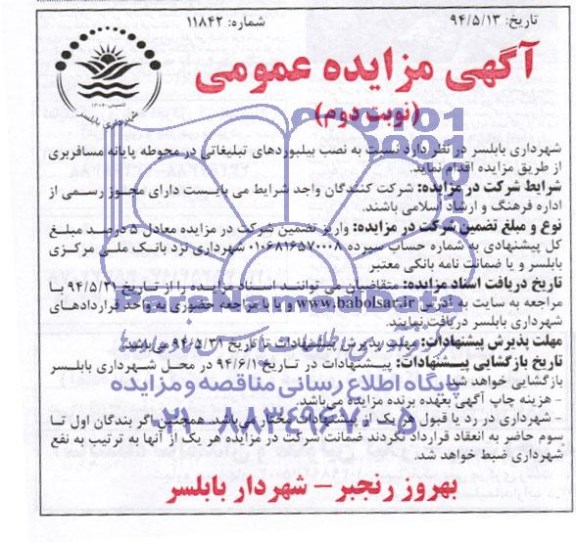 تاریخ: ۹۴/۵/۱۳ شماره: ۱۱۸۴۲
آگهی مزایده عمومی
(نوبت دوم)
شهرداری بابلسر
شهرداری بابلسر در نظر دارد نسبت به نصب بیلبوردهای تبلیغاتی در محوطه پایانه مسافربری
از طریق مزایده اقدام نماید.
شرایط شرکت در مزایده: شرکت کنندگان واجد شرایط می بایست دارای مجوز رسمی از
اداره فرهنگ و ارشاد اسلامی باشند.
نوع و مبلغ تضمین شرکت در مزایده: واریز تضمین شرکت در مزایده معادل ۵ درصد مبلغ
کل پیشنهادی به شماره حساب سپرده ۰۱۰۶۸۱۶۵۷۰۰۰۸ شهرداری نزد بانک ملی مرکزی
بابلسر و یا ضمانت نامه بانکی معتبر
تاریخ دریافت اسناد مزایده: متقاضیان می توانند اسناد مزایده را از تاریخ ۹۴/۵/۲۱ با
مراجعه به سایت به آدرس www.babolsar.ir و یا با مراجعه حضوری به واحد قراردادهای
شهرداری بابلسر دریافت نمایند.
مهلت پذیرش پیشنهادات: مهلت پذیرش پیشنهادات تا تاریخ ۹۴/۵/۳۱ می باشد.
تاریخ بازگشایی پیشنهادات: پیشنهادات در تاریخ ۹۴/۶/۱ در محل شهرداری بابلسر
بازگشایی خواهد شد.
- هزینه چاپ آگهی بعهده برنده مزایده می‌باشد.
- شهرداری در رد یا قبول هر یک از پیشنهادات مختار می‌باشد. همچنین اگر برندگان اول تا
سوم حاضر به انعقاد قرارداد نگردند ضمانت شرکت در مزایده هر یک از آنها به ترتیب به نفع
شهرداری ضبط خواهد شد.
بهروز رنجبر – شهردار بابلسر
ParsNamadData
پایگاه اطلاع رسانی مناقصه و مزایده
۰۲۱-۸۸۳۴۹۶۷۰-۵